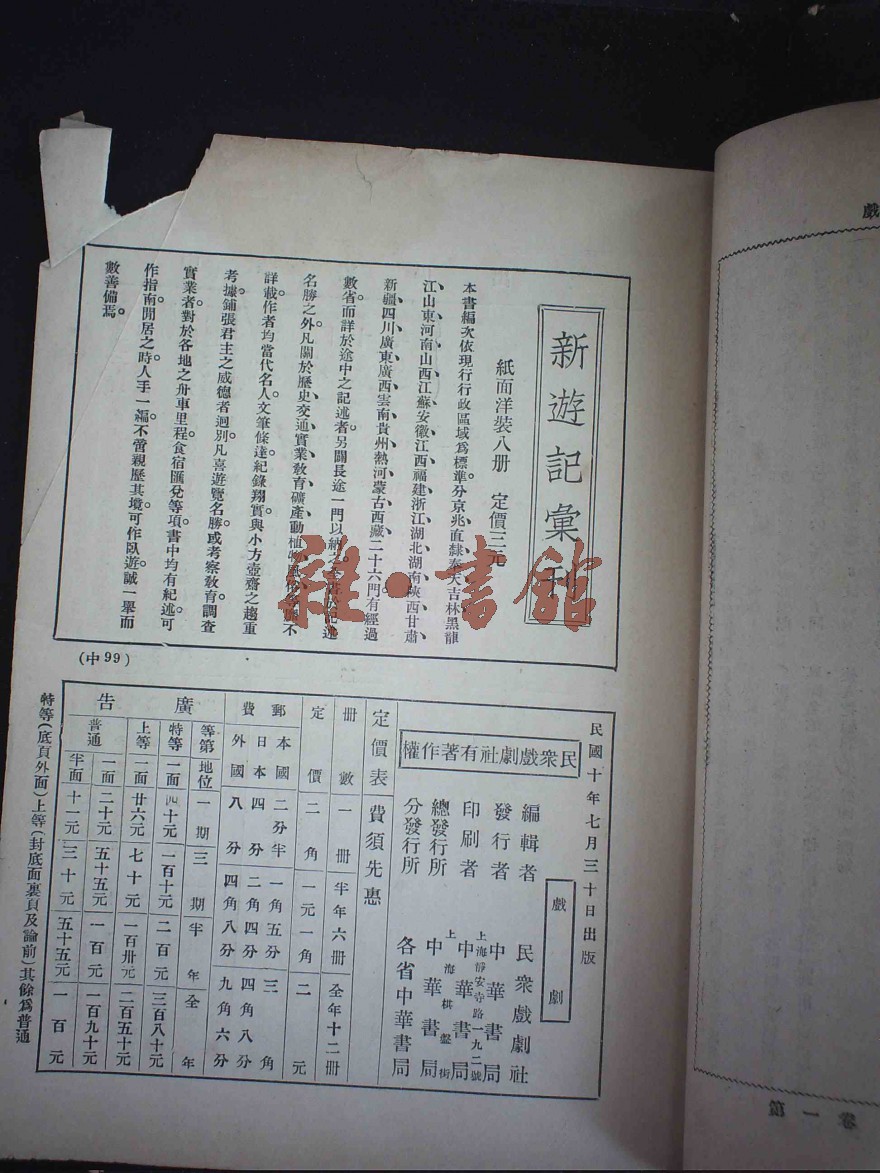 新遊記彙刊
紙面洋裝八册　定價三元
本書編次依現行行政區域爲標準分京兆直隸奉天吉林黑龍
江山東河南山西江蘇安徽江西福建浙江湖北湖南陝西甘肅
新疆四川廣東廣西雲南貴州熱河蒙古西藏二十六門有經過
數省而詳於途中之記述者另闢長途一門以納之
名勝之外凡關於歷史交通實業教育礦產動植物風俗等無不
詳載作者均當代名人文筆條達紀錄翔實與小方壺齋之趨重
考據鋪張君主之威德者迥別凡喜遊覽名勝或考察教育調查
實業者對於各地之舟車里程食宿匯兌等項書中均有紀述可
作指南閒居之時人手一編不啻親歷其境可作臥遊誠一舉而
數善備焉
(中99)
民國十年七月三十日出版
戲劇
民衆戲劇社有著作權
編輯者　民衆戲劇社
發行者　中華書局
上海靜安寺路一九二號
印刷者　中華書局
上海棋盤街
總發行所　中華書局
分發行所　各省中華書局
定價表　費須先惠
册數　一册　半年六册　全年十二册
定價　二角　一元一角　二元
郵費　本國　二分半　一角五分　三角
日本　四分　二角四分　四角八分
外國　八分　四角八分　九角六分
廣告
等第　地位　一期　三期　半年　全年
特等　一面　四十元　一百十元　二百元　三百八十元
上等　一面　廿六元　七十元　一百卅元　二百五十元
普通　一面　二十元　五十五元　一百元　一百九十元
半面　十一元　三十元　五十五元　一百元
特等(底頁外面)上等(封底面裏頁及論前)其餘爲普通
戲
第一卷
雜·書館